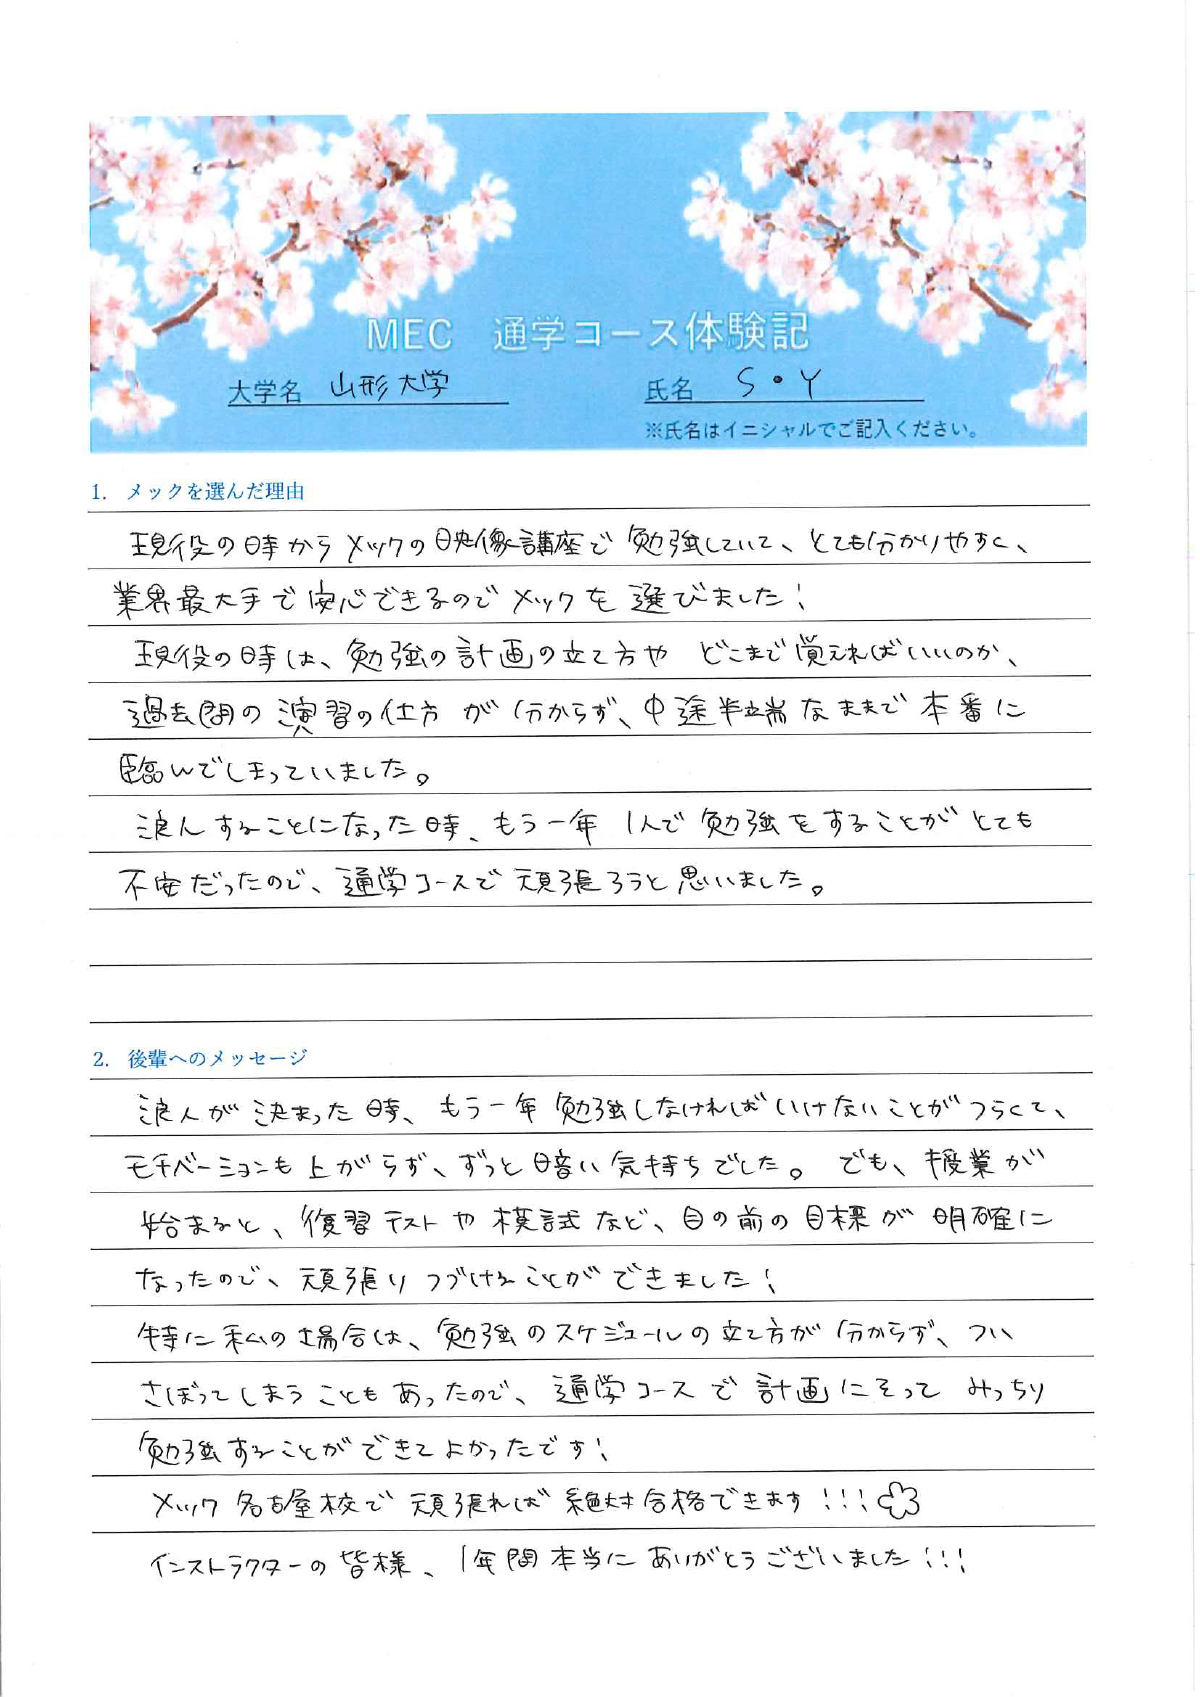 MEC 通学コース体験記
大学名 山形大学 氏名 S・Y
※氏名はイニシャルでご記入ください。
1. メックを選んだ理由
現役の時からメックの映像講座で勉強していて、とても分かりやすく、
業界最大手で安心できるのでメックを選びました!
現役の時は、勉強の計画の立て方や どこまで覚えればいいのか、
過去問の演習の仕方が分からず、中途半端なままで本番に
臨んでしまっていました。
浪人することになった時、もう一年1人で勉強をすることがとても
不安だったので、通学コースで頑張ろうと思いました。
2. 後輩へのメッセージ
浪人が決まった時、もう一年勉強しなければいけないことがつらくて、
モチベーションも上がらず、ずっと暗い気持ちでした。でも、授業が
始まると、復習テストや模試など、目の前の目標が明確に
なったので、頑張りつづけることができました!
特に私の場合は、勉強のスケジュールの立て方が分からず、つい
さぼってしまうこともあったので、通学コースで計画にそってみっちり
勉強することができてよかったです!
メック名古屋校で頑張れば絶対合格できます!!!
インストラクターの皆様、1年間本当にありがとうございました!!!